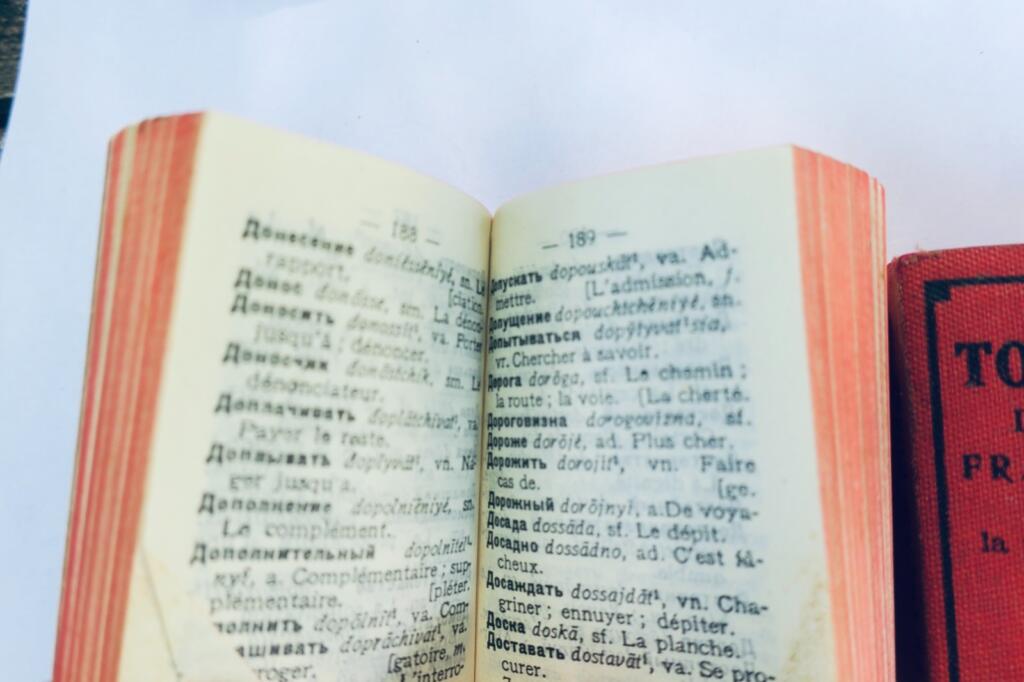 — 188 —
Донесение doniéssēniyé, sn. Le
rapport.
Донос donósse, sm. La dénon-
[ciation
Доносить donossit¹, va. Porter
jusqu'à; dénoncer.
Доносчик donōstchik, sm. Le
dénonciateur.
Доплачивать doplātchivat¹, va.
Payer le reste.
Доплывать doplyvāt¹, vn. Na-
ger jusqu'à.
Дополнение dopolniēniyé, sn.
Le complément.
Дополнительный dopolnītel¹-
nyï, a. Complémentaire; sup-
plémentaire. [pléter.
dopōlnit¹, va. Com-
doprāchivat¹, va.
[gatoire, m.
L'interro-
— 189 —
Допускать dopouskāt¹, va. Ad-
mettre. [L'admission, f.
Допущение dopouchtchēniyé, sn.
Допытываться dopȳtyvat¹sia,
vr. Chercher à savoir.
Дорога dorōga, sf. Le chemin;
la route; la voie. [La cherté.
Дороговизна dorogovizna, sf.
Дороже dorōjé, ad. Plus cher.
Дорожить dorojit¹, vn. Faire
cas de. [ge.
Дорожный dorōjnyï, a. De voya-
Досада dossāda, sf. Le dépit.
Досадно dossādno, ad. C'est fâ-
cheux.
Досаждать dossajdāt¹, vn. Cha-
griner; ennuyer; dépiter.
Доска doskā, sf. La planche.
Доставать dostavāt¹, va. Se pro-
curer.
TO
FR
la